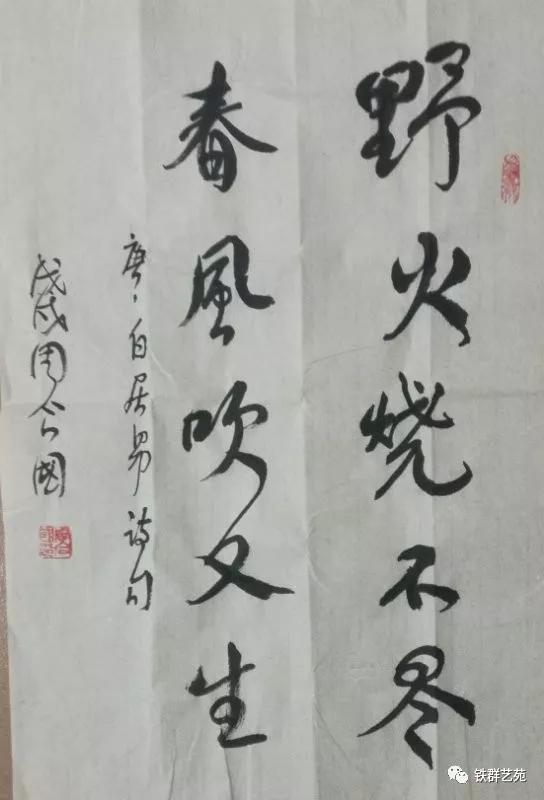 野火烧不尽
春風吹又生
唐、白居易诗句
戊戌周合國
铁群艺苑